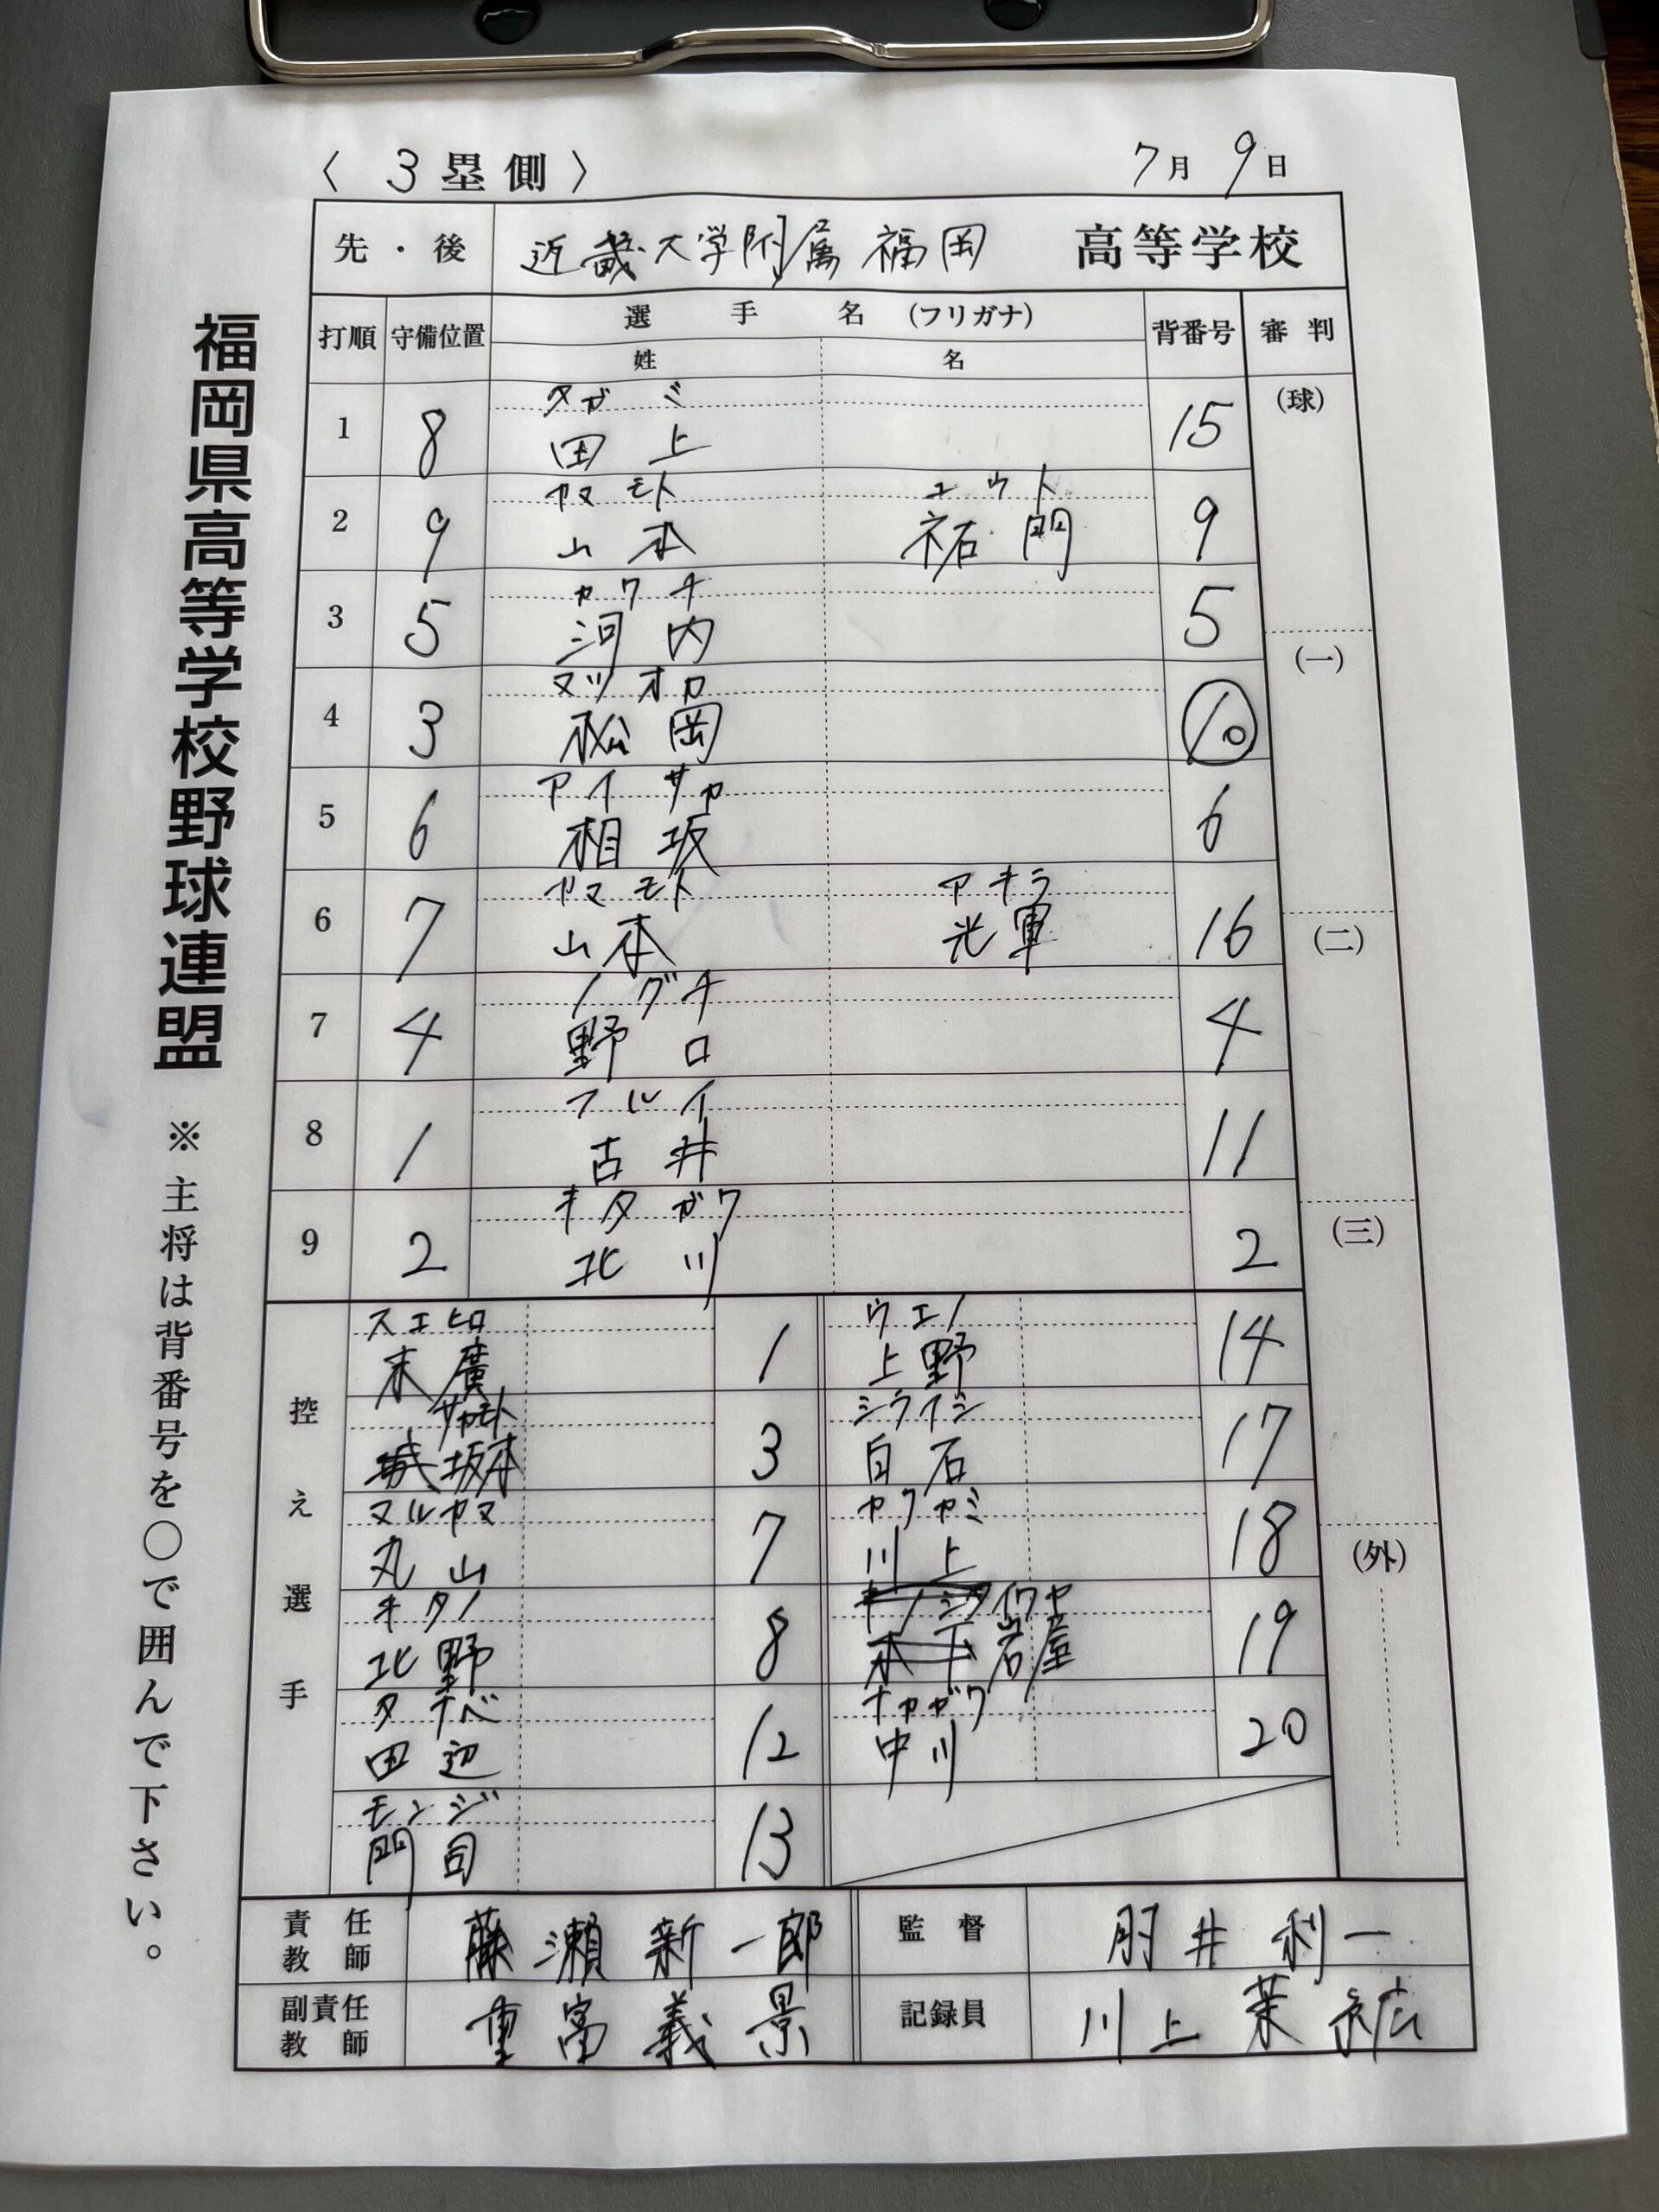 〈 3 塁 側 〉 7月 9日
先・後 近畿大学附属福岡 高等学校
打順 守備位置 選手名 (フリガナ) 背番号 審判
姓 名
(球)
タガミ
1 8 田上 15
ヤマモト ユウト
2 9 山本 祐門 9
カワチ
3 5 河内 5
(一)
マツオカ
4 3 松岡 10
アイサカ
5 6 相坂 6
ヤマモト アキラ
6 7 山本 光軍 16
(二)
ノグチ
7 4 野口 4
フルイ
8 1 古井 11
キタガワ
9 2 北川 2
(三)
控え選手
スエヒロ ウエノ
末廣 1 上野 14
サカモト シライシ
坂本 3 白石 17
マルヤマ カワカミ
丸山 7 川上 18
(外)
キタノ キノシタ イワヤ
北野 8 木下 岩屋 19
タナベ ナカガワ
田辺 12 中川 20
モンジ
門司 13
責任教師 藤瀬新一郎 監督 肘井利一
副責任教師 重冨義景 記録員 川上
福岡県高等学校野球連盟 ※主将は背番号を○で囲んで下さい。